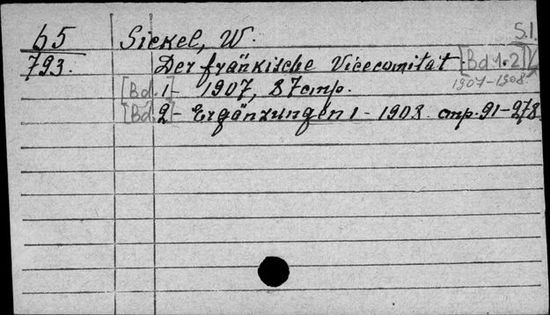 65 Sickel, W. S.l.
793. Der fränkische Vicecomitat [Bd 1.2]
1907-1908
[Bd.] 1- 1907, 87 стр.
[Bd.] 2- Ergänzungen 1 - 1908. стр. 91-278